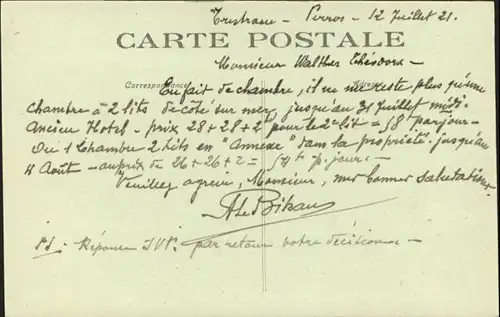 Trestraou - Perros - 12 Juillet 21.
CARTE POSTALE
Monsieur Walther Théodora -
Correspondance
Adresse
En fait de chambre, il ne me reste plus qu'une
chambre à 2 lits de côté sur mer, jusqu'au 31 Juillet midi.
Ancien Hotel - prix 28+28+2 pour le 2e lit = 58 f par jour -
Ou 1 Chambre 2 lits en "Annexe" dans la propriété. jusqu'au
4 Août - au prix de 26+26+2 = 54 f p. jour. -
Veuillez agréer, Monsieur, mes bonnes salutations
PS: Réponse SVP. par retour votre décision -